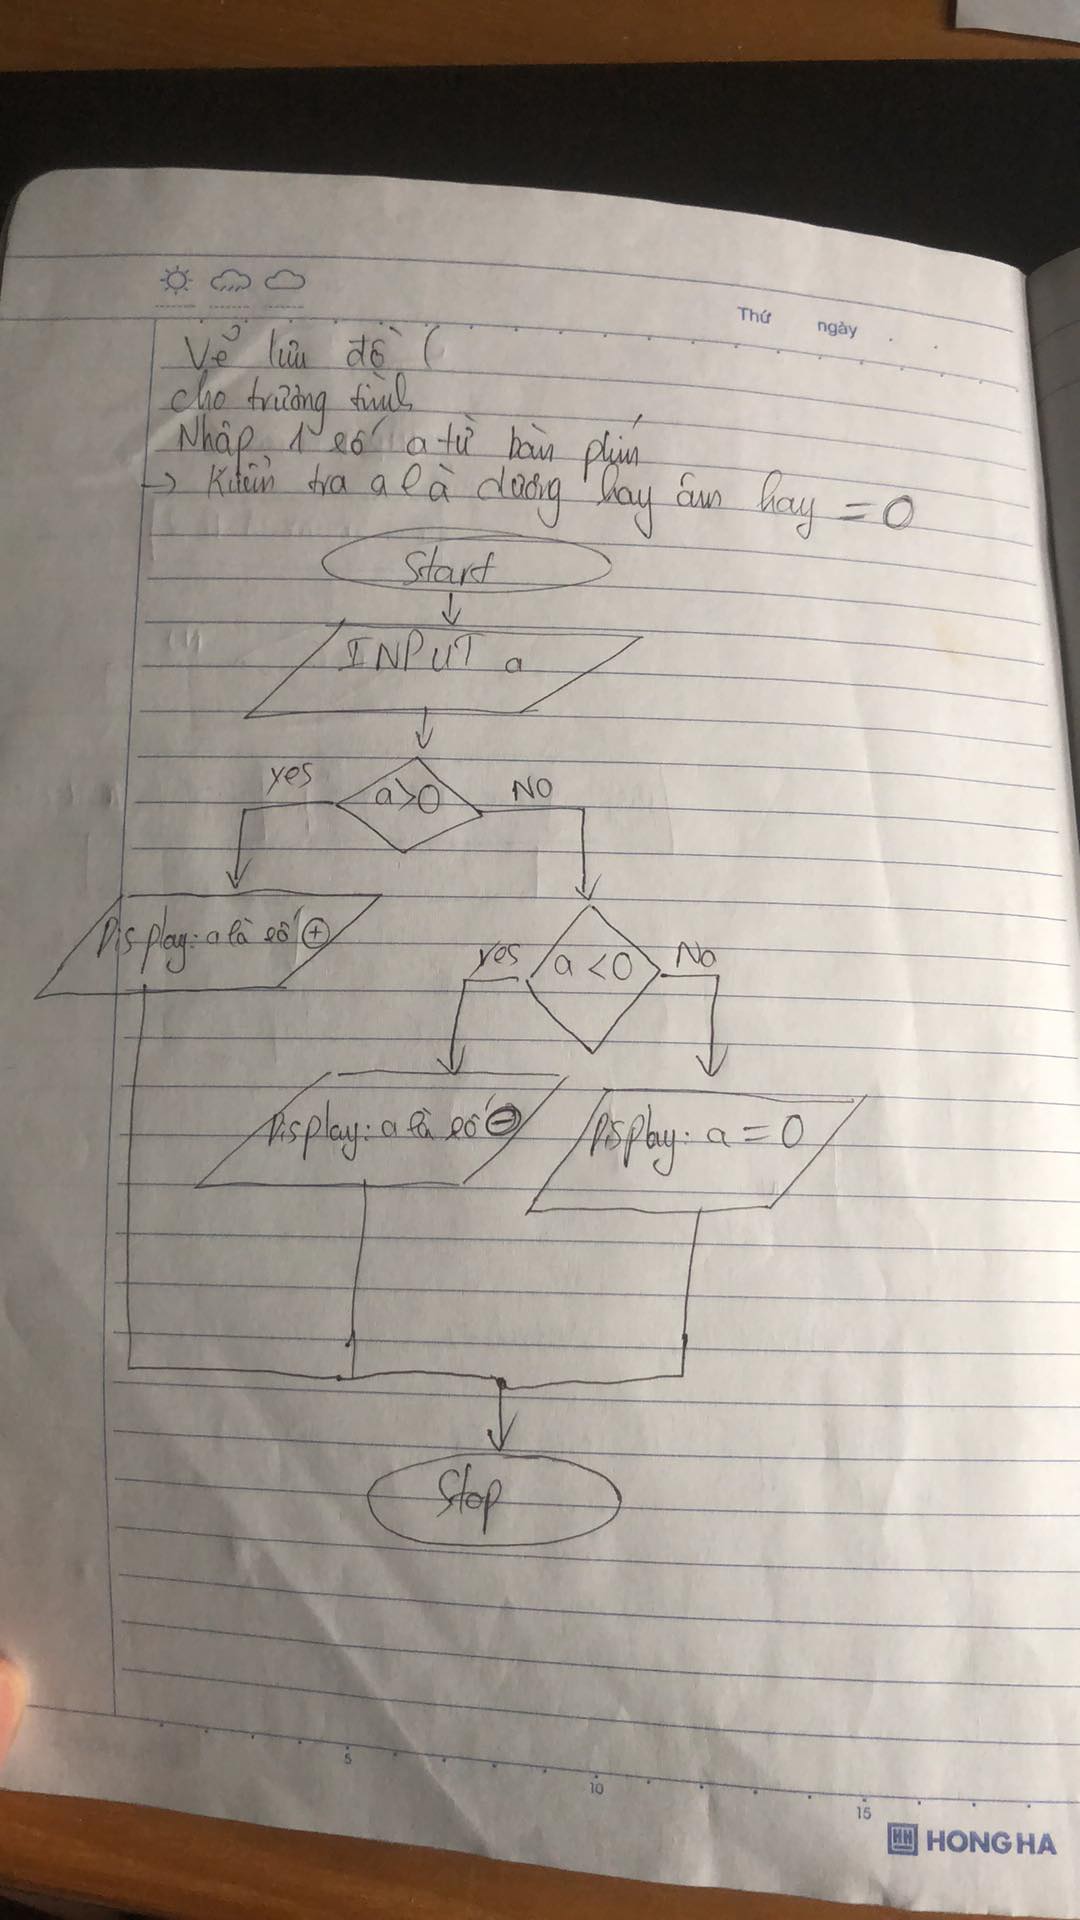 Thứ ngày
Vẽ lưu đồ (
cho trường tình
Nhập 1 số a từ bàn phím
→ Kiểm tra a là dương hay âm hay = 0
Start
INPUT a
a>0
yes
NO
Display: a là số ⊕
a<0
yes
No
Display: a là số ⊖
Display: a = 0
Stop
5
10
15
HH HONG HA